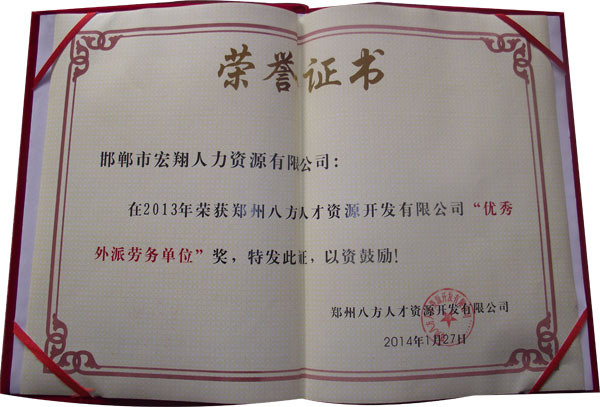 荣誉证书
邯郸市宏翔人力资源有限公司：
在2013年荣获郑州八方人才资源开发有限公司“优秀
外派劳务单位”奖，特发此证，以资鼓励！
郑州八方人才资源开发有限公司
2014年1月27日